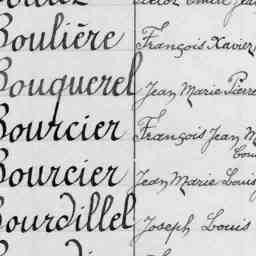 Boulière François Xavier
Bouquerel Jean Marie Pierre
Bourcier François Jean M
Bourcier Jean Marie Louis
Bourdillel Joseph Louis